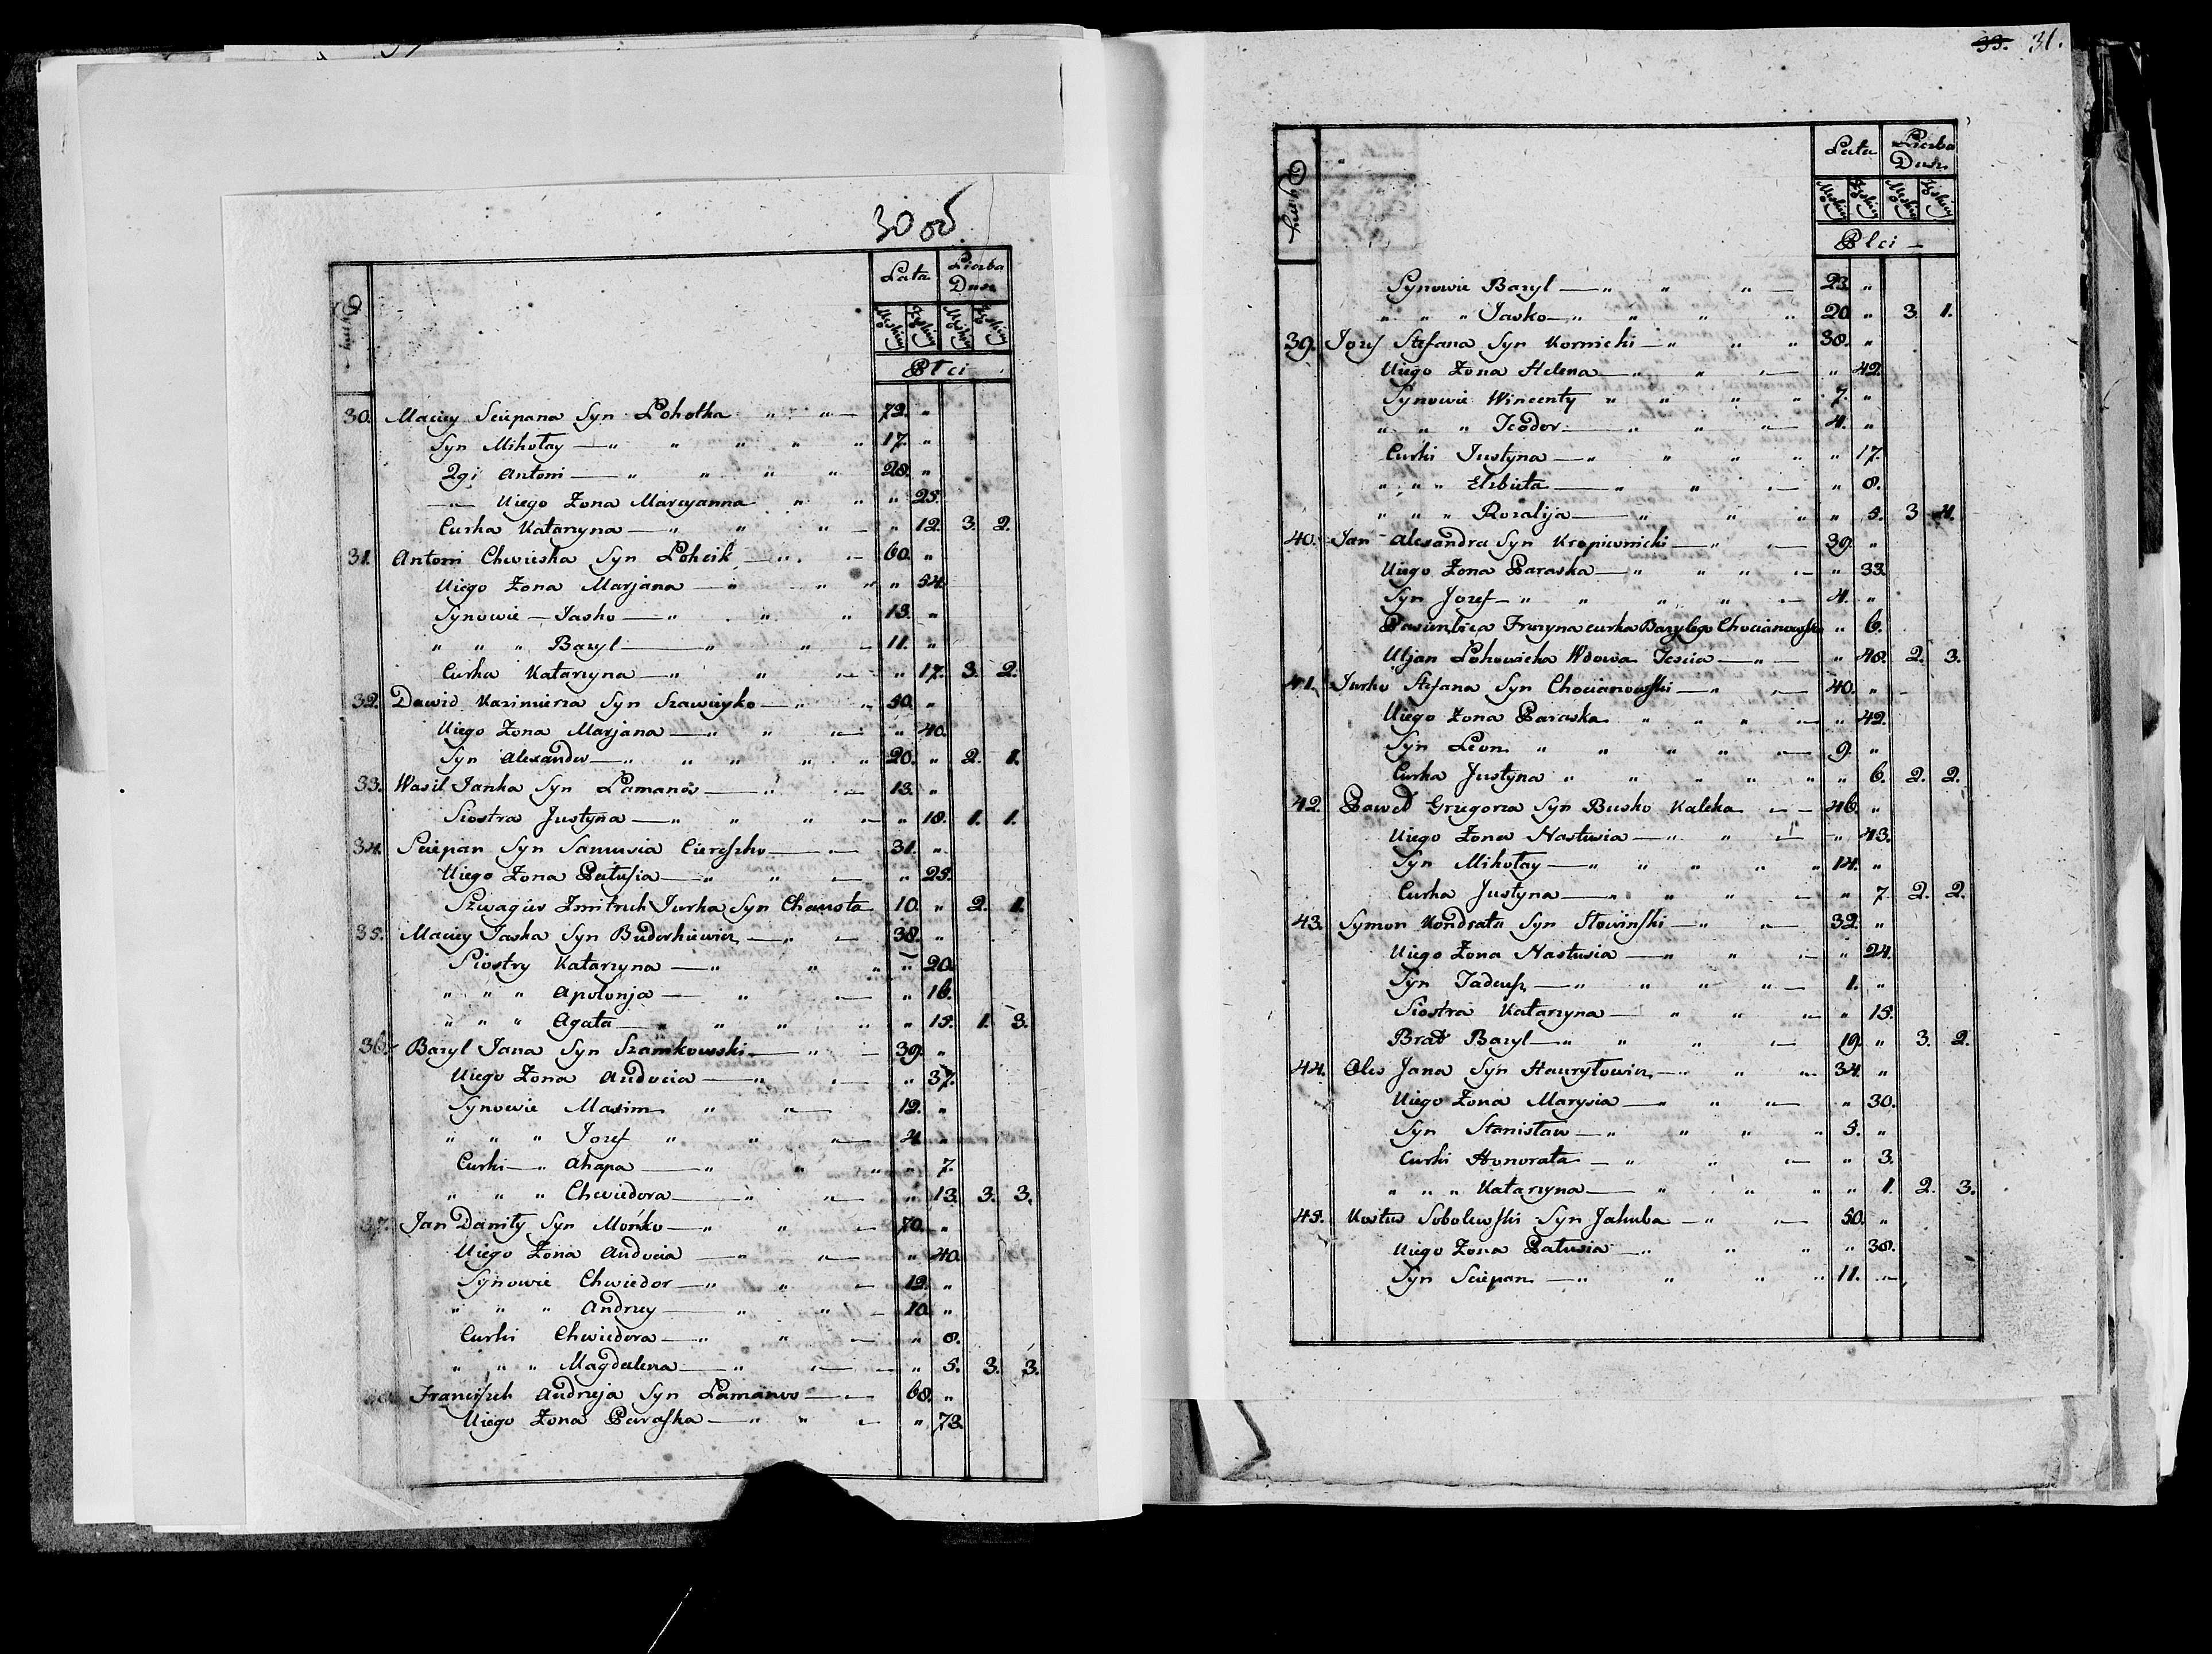 30 об
Dymy
Lata Liczba Dusz
Męskiey Żeńskiey Męskiey Żeńskiey
Płci
30. Maciey Sciepana Syn Lohotka " " — 72. "
Syn Mikołay — " " " " " 17. "
2gi Antoni — " " " " 28. "
— " Uiego Żona Maryanna " " " 25.
Curka Katarzyna — " " " — " 12. 3. 2.
31. Antoni Chwieska Syn Lohcik — " . " — 60. "
Uiego Żona Marjana — " " " " 54.
Synowie — Jasko — " " " 13. "
" " " Bazyl — " " — 11. "
Curka Katarzyna — " " " — " 17. 3. 2.
32. Dawid Kazimierza Syn Szawieyko — " " 50. "
Uiego Żona Marjana — " " " — " 40.
Syn Alexander — " " " " " 20. " 2. 1.
33. Wasil Janka Syn Lamanos — " " — 13. "
Siostra Justyna — " " " " — " 18. 1. 1.
34. Sciepan Syn Samusia Cierefzko — " — 31. "
Uiego Żona Patusia — " " " — " 25.
Szwagier Zmitruk Jurka Syn Chawsta 10. " 2. 1.
35. Maciey Jaska Syn Buderkiewicz — " " — 38. "
Siostry Katarzyna — " " " " 20.
" " " Apolonja — " " — " 16.
" " " Agata — " " " " " 15. 1. 3.
36. Bazyl Jana Syn Szamkowski — " — 39. "
Uiego Żona Audocia — " " — " 37.
Synowie Maxim " " — 12. "
" " " Jozef " " " — 4. "
Curki — " Ahapa — " " " " 7.
" " " Chwiedora — " " — " 13. 3. 3.
37. Jan Daniły Syn Mońko — " " — 70. "
Uiego Żona Audocia — " " — " 40.
Synowie Chwiedor — " " — 12. "
" " " Andrzey — " " — 10. "
Curki Chwiedora — " " " — " 8.
" " " Magdalena — " " — " 5. 3. 3.
Francifzek Andrzeja Syn Lamanos — " — 68. "
Uiego Żona Parafka — " " " — " 73.
33. 31.
Dymy
Lata Liczba Dusz
Męskiey Żeńskiey Męskiey Żeńskiey
Płci —
Synowie Bazyl — " " " — 23. "
" " " Jasko — " " " " 20. " 3. 1.
39. Jozef Stefana Syn Kornicki — " " " 38. "
Uiego Żona Helena — " " " — " 42.
Synowie Wincenty " " " " 7. "
" " " Teodor — " " " — 4. "
Curki Justyna — " " " " " 17.
" " " Elzbieta — " " " — " 8.
" " " Rozalija — " " " " 5. 3. 4.
40. Jan Alexandra Syn Kropiwnicki — " " — 39. "
Uiego Żona Paraska — " " " " — " 33.
Syn Jozef — " " " " " — 4. "
Pasierbica Fruzyna curka Bazylego Chocianowsko " 6.
Uljan Lohowicka Wdowa Tescia — " — " 48. 2. 3.
41. Jurko Stefana Syn Chocianowfki — " " — 40. "
Uiego Żona Paraska " " " " — " 42.
Syn Leon " " " " " — 9. "
Curka Justyna " " " " " " 6. 2. 2.
42. Paweł Grzegorza Syn Busko Kaleka " — — 46. "
Uiego Żona Nastusia — " " " — " 43.
Syn Mikołay — " " " " " 14. "
Curka Justyna — " " " " — " 7. 2. 2.
43. Symon Kondrata Syn Słowinfki — " " — 32. "
Uiego Żona Nastusia — " " " — " 24.
Syn Tadeufz — " " " " — 1. "
Siostra Katarzyna — " " " — " 15.
Brat Bazyl — " " " " — 19. " 3. 2.
44. Oles Jana Syn Hauryłowicz — " " " — 34. "
Uiego Żona Marysia — " " " — " 30.
Syn Stanisław — " " " " 5. "
Curki Honorata — " " " — " 3.
" " " Katarzyna — " " " " 1. 2. 3.
45. Kostus Sobolewfki Syn Jakuba — " " — 50. "
Uiego Żona Patusia — " " " " 38.
Syn Sciepan — " " " " 11. "